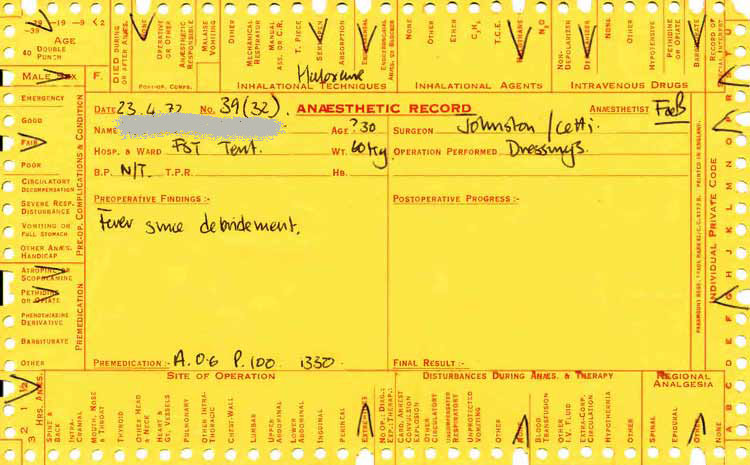 -39 -19 -9 <2
40 DOUBLE PUNCH
AGE
DIED DURING OR AFTER ANÆS.
NONE
OPERATIVE OR OTHER
ANÆSTHETIC RESPONSIBLE
MALAISE VOMITING
OTHER
MECHANICAL RESPIRATOR
MANUAL ASS. OR C.R.
T. PIECE
SEMI-OPEN
ABSORPTION
ENDOTRACHEAL
NONE
OTHER
ETHER
C₃H₆
T.C.E.
HALOTHANE
N₂O
NON-DEPOLARIZER
DEPOLARIZER
NONE
OTHER
HYPOTENSIVE
PETHIDINE OR OPIATE
BARBITURATE
RECORD OF SPECIAL INTEREST
MALE SEX F.
POST-OP. COMPS.
INHALATIONAL TECHNIQUES
INHALATIONAL AGENTS
INTRAVENOUS DRUGS
DATE 23.4.72 No. 39(32). ANÆSTHETIC RECORD ANÆSTHETIST
NAME AGE ?30 SURGEON Johnston / Cetti.
HOSP. & WARD FST Tent. WT. 60Kg OPERATION PERFORMED Dressings
B.P. N/T T.P.R. HB.
PREOPERATIVE FINDINGS :-
POSTOPERATIVE PROGRESS :-
Fever since debridement.
PREMEDICATION :- A. 0.6 P. 100 1330
FINAL RESULT :-
EMERGENCY
GOOD
FAIR
POOR
CIRCULATORY DECOMPENSATION
SEVERE RESP. DISTURBANCE
VOMITING OR FULL STOMACH
OTHER ANÆS. HANDICAP
PRE-OP. COMPLICATIONS & CONDITION
ATROPINE OR SCOPOLAMINE
PETHIDINE OR OPIATE
PHENOTHIAZINE DERIVATIVE
BARBITURATE
OTHER
PREMEDICATION
INDIVIDUAL PRIVATE CODE
PRINTED IN ENGLAND.
3 2 1 ½
HRS. ANÆS.
SITE OF OPERATION
DISTURBANCES DURING ANÆS. & THERAPY
REGIONAL ANALGESIA
SPINE & BACK
INTRA-CRANIAL
MOUTH, NOSE & THROAT
THYROID
OTHER HEAD & NECK
HEART & GT. VESSELS
PULMONARY
OTHER INTRA-THORACIC
CHEST-WALL
LUMBAR
UPPER ABDOMINAL
LOWER ABDOMINAL
INGUINAL
PERINEAL
EXTREMITIES
CARD. ARREST
CONVULSION
EXPLOSION
OTHER CIRCULATORY
UNCOMPENSATED RESPIRATORY
UNPROTECTED VOMITING
OTHER
NONE
BLOOD TRANSFUSION
OTHER I.V. FLUID
EXTRA-CORP. CIRCULATION
HYPOTHERMIA
OTHER
SPINAL
EPIDURAL
OTHER
NONE